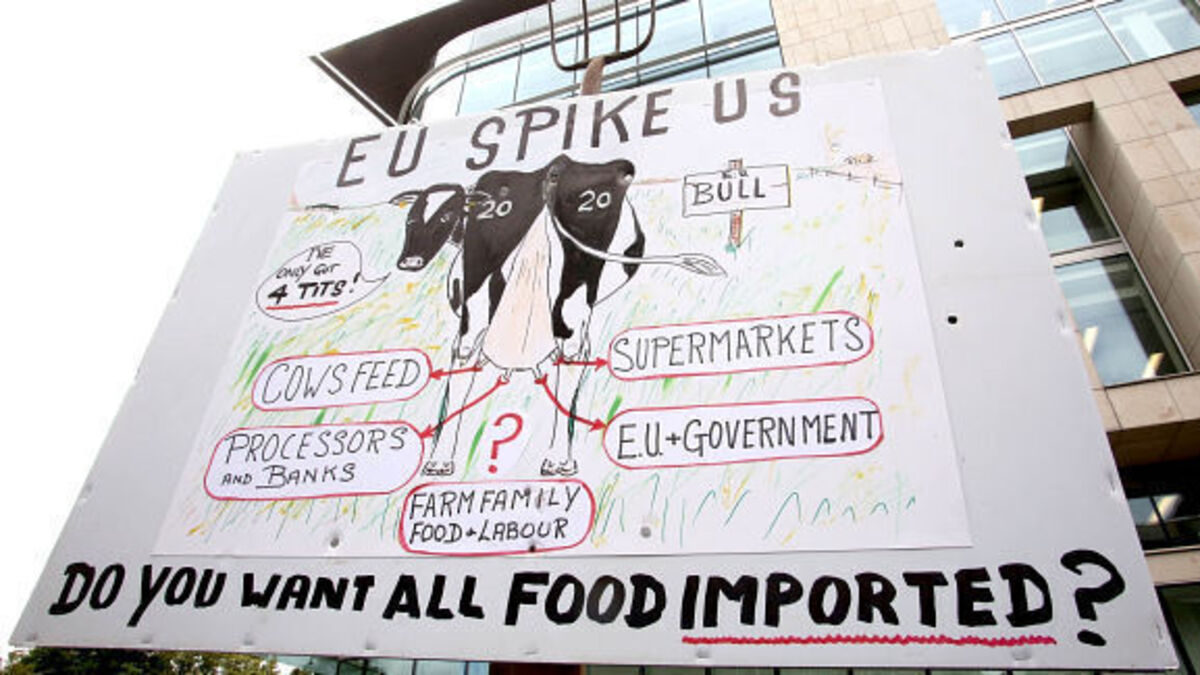 EU SPIKE US
BULL
20 20
I'VE
ONLY GOT
4 TITS!
COWS FEED
SUPERMARKETS
PROCESSORS
AND BANKS
E.U+GOVERNMENT
?
FARM FAMILY
FOOD+LABOUR
DO YOU WANT ALL FOOD IMPORTED?